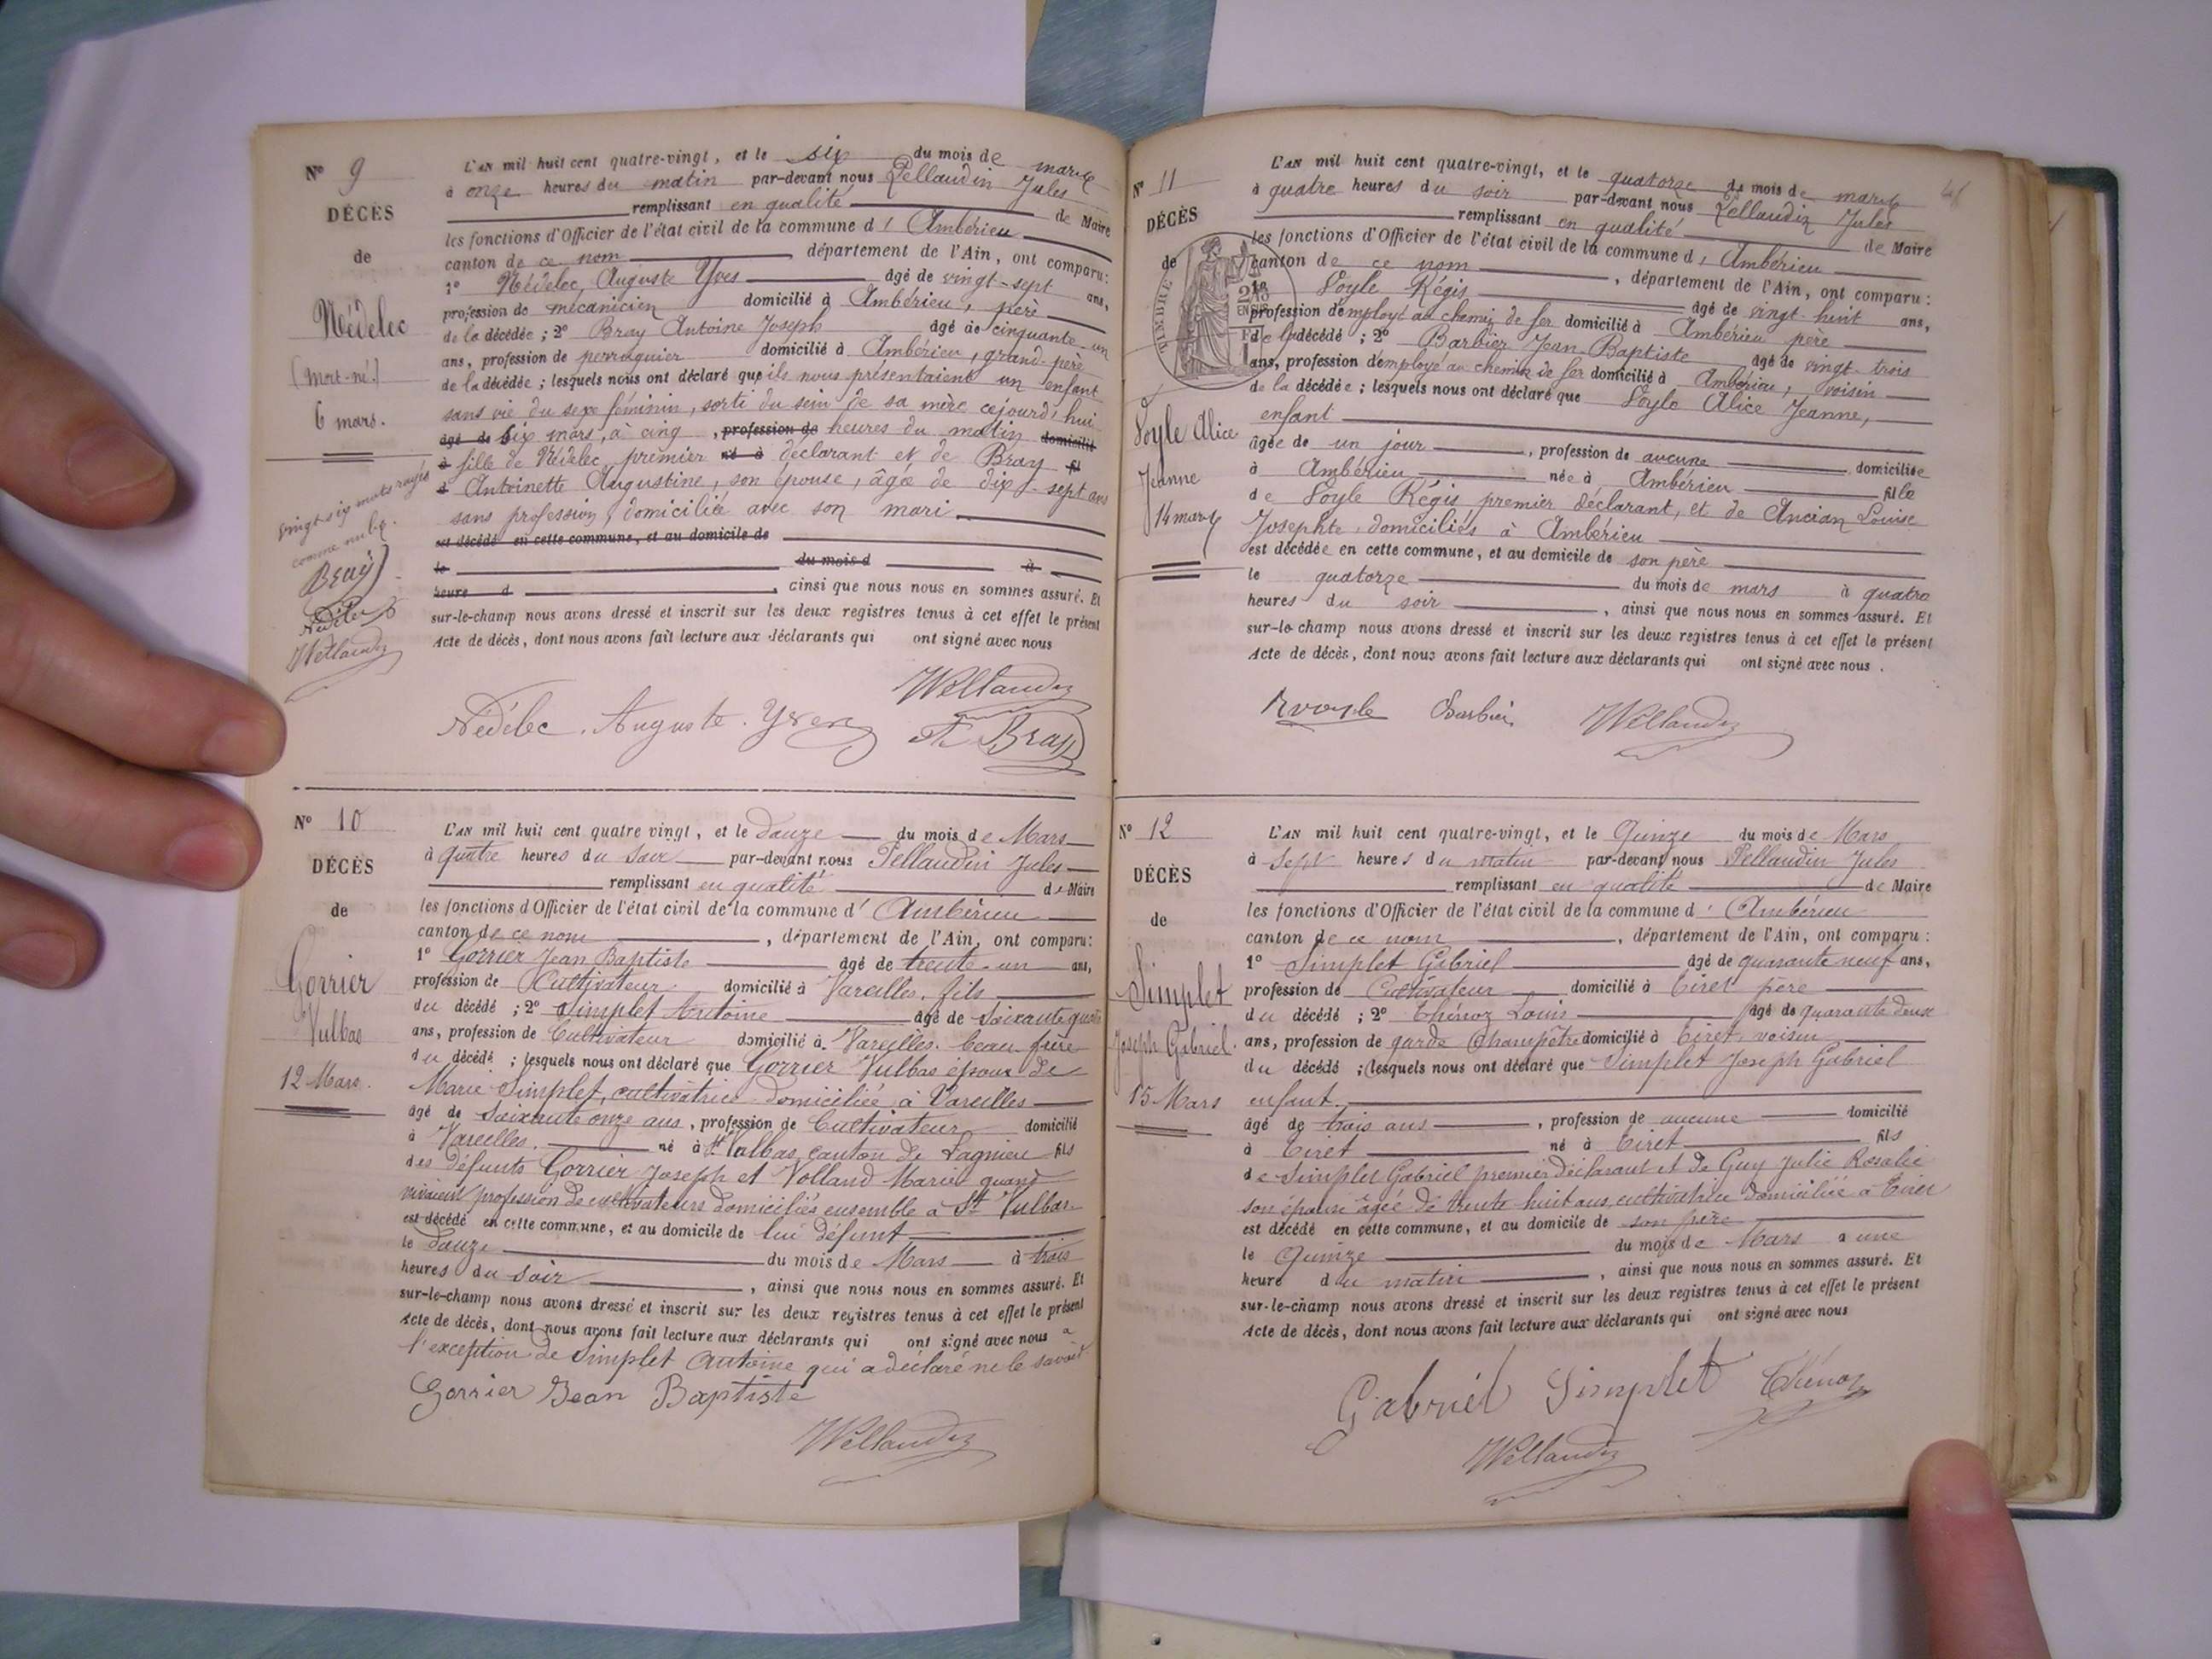 N° 9
DÉCÈS
de
Nédelec
(Mort-né.)
6 mars.
vingt-six mots rayés
comme nuls.
Bray
Nédelec
L'AN mil huit cent quatre-vingt, et le six du mois de mars
à onze heures du matin par-devant nous Pellaudin Jules
remplissant en qualité de Maire
les fonctions d'Officier de l'état civil de la commune d' Ambérieu
canton de ce nom, département de l'Ain, ont comparu:
1° Nédelec Auguste Yves âgé de vingt-sept ans,
profession de mécanicien domicilié à Ambérieu, père
de la décédée; 2° Bray Antoine Joseph âgé de cinquante-un
ans, profession de perruquier domicilié à Ambérieu, grand-père
de la décédée; lesquels nous ont déclaré que ils nous présentaient un enfant
sans vie du sexe féminin, sorti du sein de sa mère cejourd'hui
âgé de six mars, à cinq, profession de heures du matin domicilié
à fille de Nédelec premier né à déclarant et de Bray fil
d Antoinette Augustine, son épouse, âgée de dix-sept ans
sans profession, domiciliée avec son mari
est décédé en cette commune, et au domicile de
le du mois d à
heure d, ainsi que nous nous en sommes assuré. Et
sur-le-champ nous avons dressé et inscrit sur les deux registres tenus à cet effet le présent
Acte de décès, dont nous avons fait lecture aux déclarants qui ont signé avec nous
Nédélec Auguste Yves
Bray
N° 10
DÉCÈS
de
Gorrier
Vulbas
12 Mars.
L'AN mil huit cent quatre vingt, et le douze du mois de Mars
à quatre heures du soir par-devant nous Pellaudin Jules
remplissant en qualité de Maire
les fonctions d'Officier de l'état civil de la commune d' Ambérieu
canton de ce nom, département de l'Ain, ont comparu:
1° Gorrier Jean Baptiste âgé de trente-un ans,
profession de Cultivateur domicilié à Vareilles, fils
du décédé; 2° Simplet Antoine âgé de soixante quatre
ans, profession de Cultivateur domicilié à Vareilles, beau-frère
du décédé; lesquels nous ont déclaré que Gorrier Vulbas époux de
Marie Simplet, cultivatrice domiciliée à Vareilles
âgé de soixante onze ans, profession de Cultivateur domicilié
à Vareilles. né à St Vulbas, canton de Lagnieu fils
des défunts Gorrier Joseph et Volland Marie quand
vivaient profession de cultivateurs domiciliés ensemble à St Vulbas
est décédé en cette commune, et au domicile de lui défunt
le douze du mois de Mars à trois
heures du soir, ainsi que nous nous en sommes assuré. Et
sur-le-champ nous avons dressé et inscrit sur les deux registres tenus à cet effet le présent
Acte de décès, dont nous avons fait lecture aux déclarants qui ont signé avec nous à
l'exception de Simplet Antoine qui a déclaré ne le savoir
Gorrier Jean Baptiste
N° 11
DÉCÈS
de
TIMBRE
Loyle Alice
Jeanne
14 mars
L'AN mil huit cent quatre-vingt, et le quatorze du mois de mars
à quatre heures du soir par-devant nous Pellaudin Jules
remplissant en qualité de Maire
les fonctions d'Officier de l'état civil de la commune d' Ambérieu
canton de ce nom, département de l'Ain, ont comparu:
1° Loyle Régis âgé de vingt huit ans,
profession d'employé au chemin de fer domicilié à Ambérieu père
de la décédé; 2° Barbier Jean-Baptiste âgé de vingt-trois
ans, profession d'employé au chemin de fer domicilié à Ambérieu, voisin
de la décédée; lesquels nous ont déclaré que Loyle Alice Jeanne,
enfant
âgée de un jour, profession de aucune domiciliée
à Ambérieu née à Ambérieu fille
de Loyle Régis premier déclarant, et de Ancian Louise
Josephte, domiciliés à Ambérieu
est décédée en cette commune, et au domicile de son père
le quatorze du mois de mars à quatre
heures du soir, ainsi que nous nous en sommes assuré. Et
sur-le champ nous avons dressé et inscrit sur les deux registres tenus à cet effet le présent
Acte de décès, dont nous avons fait lecture aux déclarants qui ont signé avec nous.
Barbier
N° 12
DÉCÈS
de
Simplet
Joseph Gabriel.
15 Mars
L'AN mil huit cent quatre-vingt, et le Quinze du mois de Mars
à sept heures du matin par-devant nous Pellaudin Jules
remplissant en qualité de Maire
les fonctions d'Officier de l'état civil de la commune d' Ambérieu
canton de ce nom, département de l'Ain, ont comparu:
1° Simplet Gabriel âgé de quarante neuf ans,
profession de Cultivateur domicilié à Tiret père
du décédé; 2° Thénoz Louis âgé de quarante deux
ans, profession de garde Champêtre domicilié à Tiret, voisin
du décédé; lesquels nous ont déclaré que Simplet Joseph Gabriel
enfant.
âgé de trois ans, profession de aucune domicilié
à Tiret né à Tiret fils
de Simplet Gabriel premier déclarant et de Guy Julie Rosalie
son épouse âgée de trente huit ans, cultivatrice domiciliée à Tiret
est décédé en cette commune, et au domicile de son père
le Quinze du mois de Mars à une
heure du matin, ainsi que nous nous en sommes assuré. Et
sur-le-champ nous avons dressé et inscrit sur les deux registres tenus à cet effet le présent
Acte de décès, dont nous avons fait lecture aux déclarants qui ont signé avec nous
Gabriel Simplet Thénoz